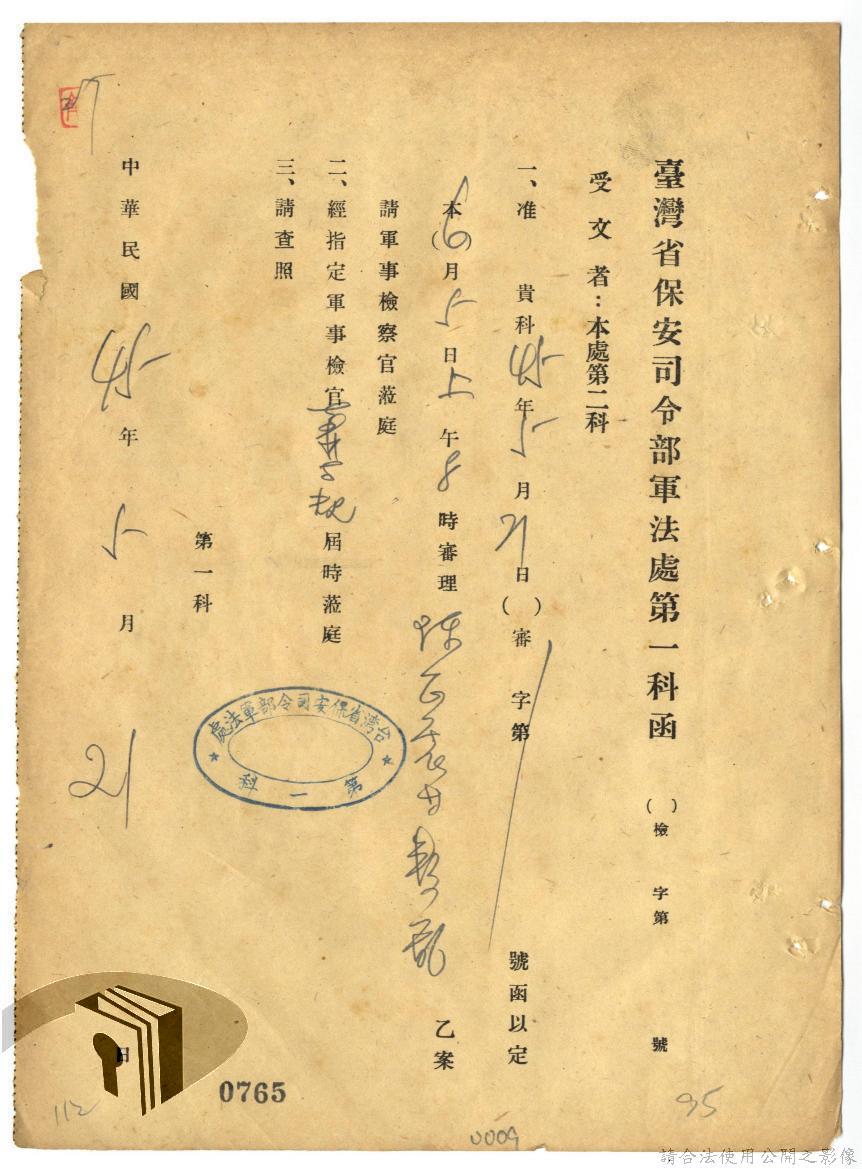 臺灣省保安司令部軍法處第一科函
()檢 字第 號
受文者：本處第二科
一、准 貴科45年5月21日()審 字第 號函以定
本(6)月5日上午8時審理 乙案
請軍事檢察官蒞庭
二、經指定軍事檢官 屆時蒞庭
三、請查照
第一科
台灣省保安司令部軍法處
第一科
中華民國45年5月21日
0765
112
0009
95
請合法使用公開之影像